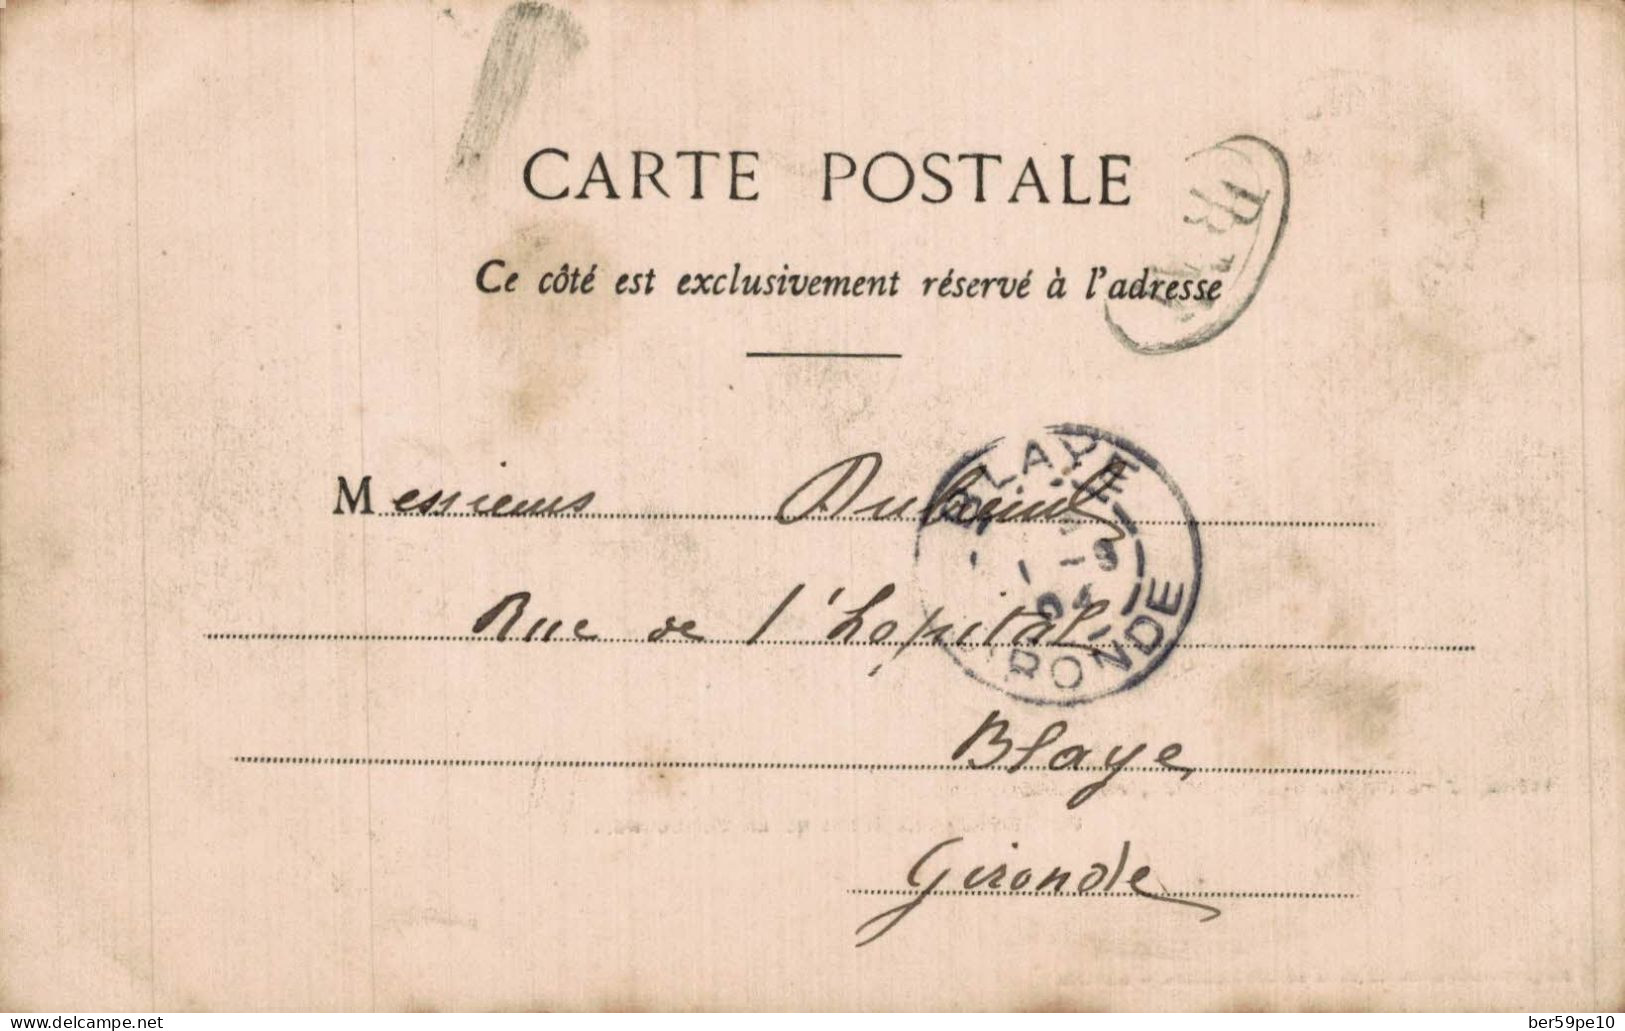 CARTE POSTALE
Ce côté est exclusivement réservé à l'adresse
Messieurs Dubreuil
Rue de l'hopital
Blaye
Gironde
BLAYE
GIRONDE
delcampe.net
ber59pe10